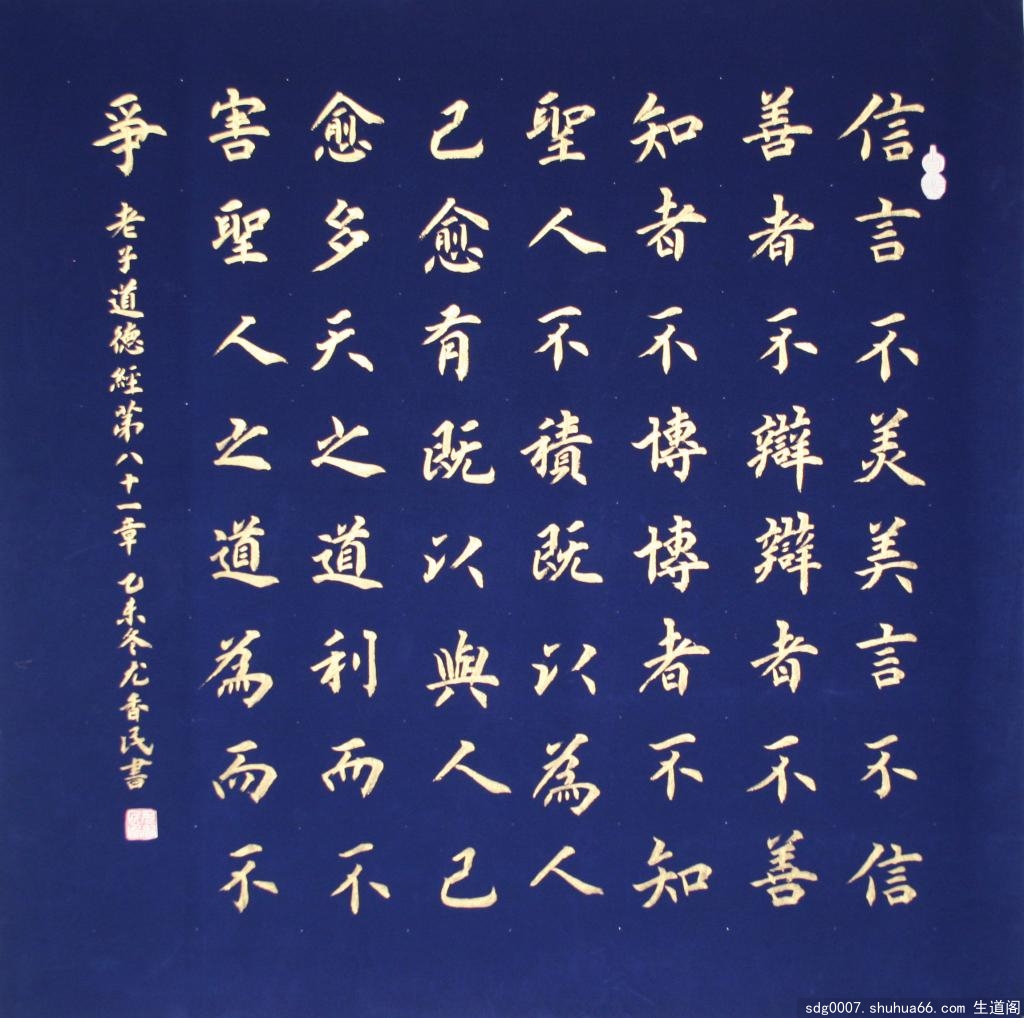 信言不美美言不信
善者不辯辯者不善
知者不博博者不知
聖人不積既以為人
己愈有既以與人己
愈多天之道利而不
害聖人之道為而不
爭
老子道德經第八十一章 乙未冬尤香民書
sdg0007.shuhua66.com 生道阁